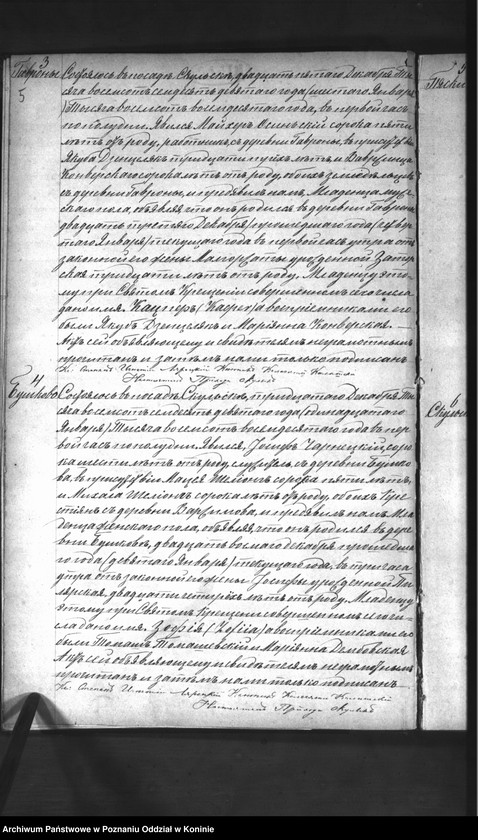 3
Гавроны
5
Состоялось въ посадѣ Скульскѣ, двадцать пятаго Декабря Ты-
сяча восемьсотъ семдесятъ девятаго года /шестаго Января/
Тысяча восемьсотъ восемдесятаго года, въ первой часъ
по полудни. Явился Майхеръ сорока пяти
лѣтъ отъ роду, работникъ съ деревни Гавроны, въ присутствіи
Якуба тридцати лѣтъ и Вавринца
Конверскаго сорока лѣтъ отъ роду, обоихъ земледѣльцевъ
съ деревни Гавроны, и предъявилъ намъ Младенца муже-
скаго пола, объявляя что онъ родился въ деревни Гавронахъ
двадцать третьяго Декабря /прошедшаго года/ четвер-
таго Января /текущаго года въ первой часъ утра отъ
законной его жены Малгоржаты урожденной
тридцати лѣтъ отъ роду. Младенцу это-
му при Святомъ Крещеніи совершенномъ сего числа
дано имя Кацперъ /Kacper/ а воспріемниками его
были Якубъ и Маріянна Конверская. —
Актъ сей объявляющему и свидѣтелямъ неграмотнымъ
прочитанъ и затѣмъ нами только подписанъ
Кс.
Настоятель Прихода Скульскъ
4
Бушково
Состоялось въ посадѣ Скульскѣ, тридцатаго Декабря Ты-
сяча восемьсотъ семдесятъ девятаго года /одинадцатаго
Января/ Тысяча восемьсотъ восемдесятаго года въ пер-
вой часъ по полудни. Явился Іосифъ Чарнецкій, соро-
ка шести лѣтъ отъ роду, служитель съ деревни Бушко-
ва, въ присутствіи Мацея сорока пяти лѣтъ,
и Михала сорока лѣтъ отъ роду, обоихъ Кре-
стьянъ съ деревни Варзимова, и предъявилъ намъ Мла-
денца женскаго пола, объявляя, что онъ родился въ дере-
вни Бушковѣ, двадцать восьмаго Декабря прошедша-
го года /девятаго Января/ текущаго года, въ три часа
утра отъ законной его жены Іозефы урожденной Пи-
лярская двадцати четырехъ лѣтъ отъ роду. Младенцу
этому при Святомъ Крещеніи совершенномъ сего чи-
сла дано имя Зофія /Zofija/ а воспріемниками его
были Томашъ Томашевскій и Маріянна Дембовская
Актъ сей объявляющему и свидѣтелямъ неграмотнымъ
прочитанъ и затѣмъ нами только подписанъ
Кс.
Настоятель Прихода Скульскъ
5
6
Archiwum Państwowe w Poznaniu Oddział w Koninie